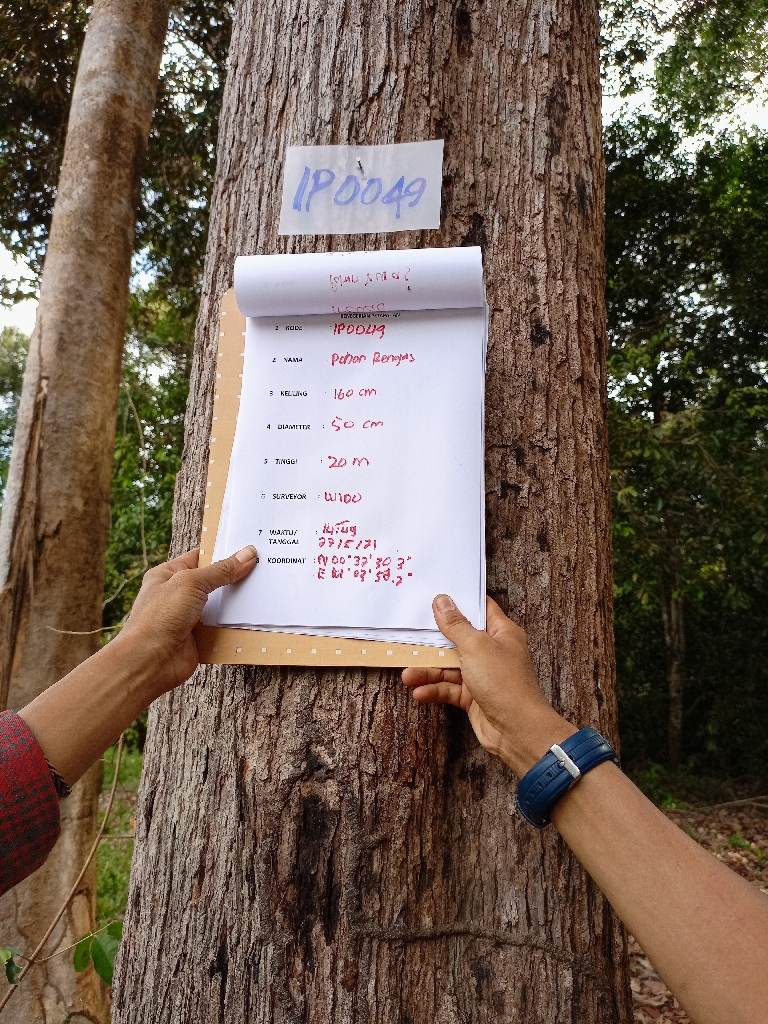 IP0049
1 KODE : IP0049
2 NAMA Pohon Rengas
3 KELILING : 160 cm
4 DIAMETER : 50 cm
5 TINGGI : 20 m
6 SURVEYOR : WIDO
7 WAKTU/ : 14:49
TANGGAL 27/5/21
8 KOORDINAT : N 00°32'30.3"
E 101°03'58.2"